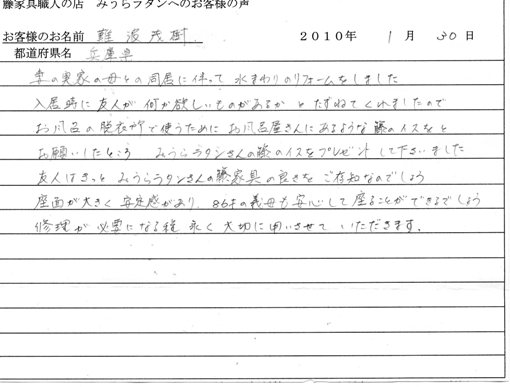 藤家具職人の店　みうらラタンへのお客様の声
お客様のお名前　難波茂樹　２０１０年　１月　３０日
都道府県名　兵庫県
妻の実家の母との同居に伴って　水まわりのリフォームをしました
入居時に友人が　何か欲しいものがあるか　とたずねてくれましたので
お風呂の脱衣所で使うために　お風呂屋さんにあるような籐のイスをと
お願いしたところ　みうらラタンさんの籐のイスをプレゼントして下さいました
友人はきっと　みうらラタンさんの籐家具の良さをご存知なのでしょう
座面が大きく　安定感があり、86才の義母も安心して座ることができるでしょう
修理が必要になる程　永く大切に用いさせていただきます。